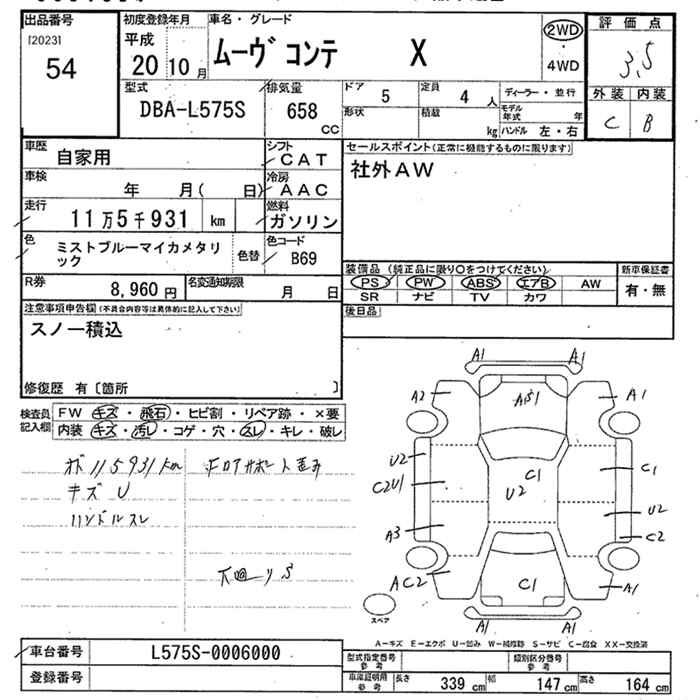 出品番号
[2023]
54
初度登録年月
平成
20 10 月
車名・グレード
ムーヴ コンテ X
2WD
・
4WD
評価点
3,5
外装 内装
C B
型式
DBA-L575S
排気量
658
CC
ドア
5
定員
4 人
ディーラー・並行
形状
積載
kg
モデル年式 年
ハンドル 左・右
車歴
自家用
シフト
CAT
車検
年 月( 日)
冷房
AAC
走行
11万5千931 km
燃料
ガソリン
色
ミストブルーマイカメタリ
ック
色替
色コード
B69
R券
8,960 円
名変通知期限
月 日
セールスポイント(正常に機能するものに限ります)
社外AW
装備品 (純正品に限り○をつけてください)
PS PW ABS エアB AW
SR ナビ TV カワ
新車保証書
有・無
後日品
注意事項申告欄(不具合内容等は具体的に記入して下さい)
スノー積込
修復歴 有〔箇所 〕
検査員
記入欄
FW キズ・飛石・ヒビ割・リペア跡・×要
内装 キズ・汚レ・コゲ・穴・スレ・キレ・破レ
115931km
キズ U
ハンドルスレ
FロアサポートⅠ歪み
下回リS
A1 A1
A2 A1 A1
U2 C1 C1
C2U1 U2 U2
A3 C2
AC2 C1 A1
A1 A1
スペア
A―キズ E―エクボ U―凹み W―補修跡 S―サビ C―腐食 XX―交換済
車台番号
L575S-0006000
登録番号
型式指定番号
参考
類別区分番号
参考
車庫証明用
参考
長さ 339 cm
幅 147 cm
高さ 164 cm